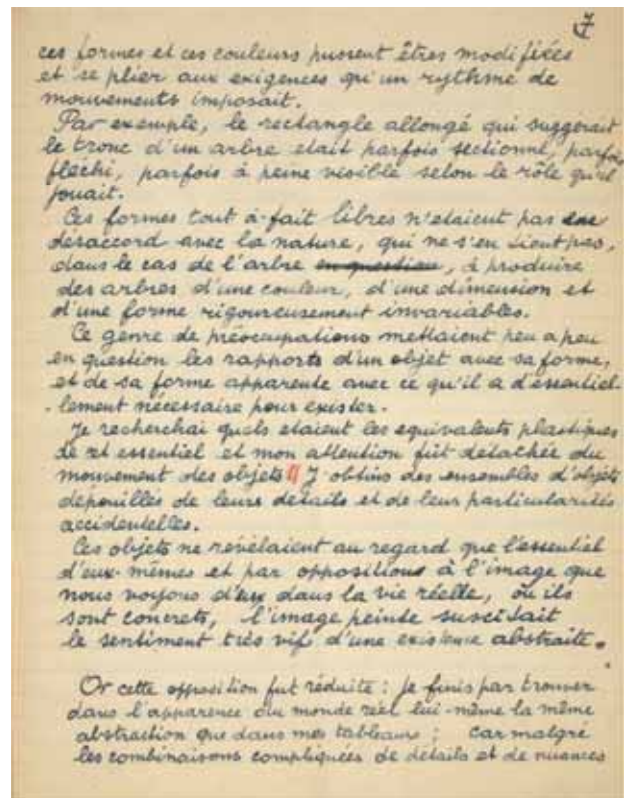 7
ces formes et ces couleurs pussent êtres modifiées
et se plier aux exigences qu'un rythme de
mouvements imposait.
Par exemple, le rectangle allongé qui suggerait
le tronc d'un arbre etait parfois sectionné, parfois
fléchi, parfois à peine visible selon le rôle qu'il
jouait.
Ces formes tout à-fait libres n'etaient pas en
désaccord avec la nature, qui ne s'en tient pas,
dans le cas de l'arbre en question, à produire
des arbres d'une couleur, d'une dimension et
d'une forme rigoureusement invariables.
Ce genre de préoccupations mettaient peu a peu
en question les rapports d'un objet avec sa forme,
et de sa forme apparente avec ce qu'il a d'essentiel-
-lement nécessaire pour exister.
Je recherchai quels etaient les equivalents plastiques
de cet essentiel et mon attention fût detachée du
mouvement des objets J'obtins des ensembles d'objets
dépouillés de leurs details et de leur particularités
accidentelles.
Ces objets ne révèlaient au regard que l'essentiel
d'eux-mêmes et par oppositions à l'image que
nous voyons d'eux dans la vie réelle, où ils
sont concrets, l'image peinte suscitait
le sentiment très vif d'une existence abstraite.
Or cette opposition fut réduite : je finis par trouver
dans l'apparence du monde réel lui-même la même
abstraction que dans mes tableaux ; car malgré
les combinaisons compliquées de détails et de nuances